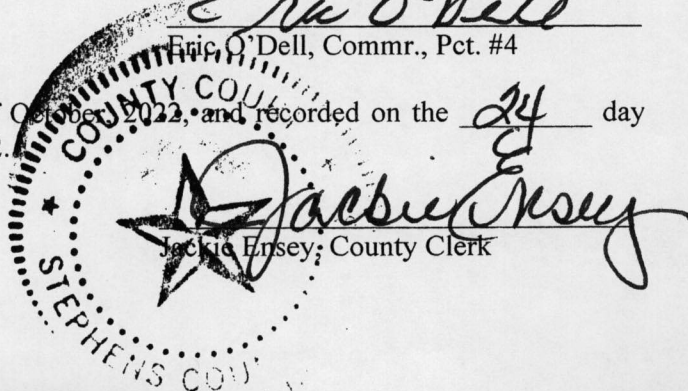 Eric O'Dell
Eric O'Dell, Commr., Pct. #4
October, 2022, and recorded on the 24 day
Jackie Ensey
Jackie Ensey, County Clerk
COUNTY COU
STEPHENS COU